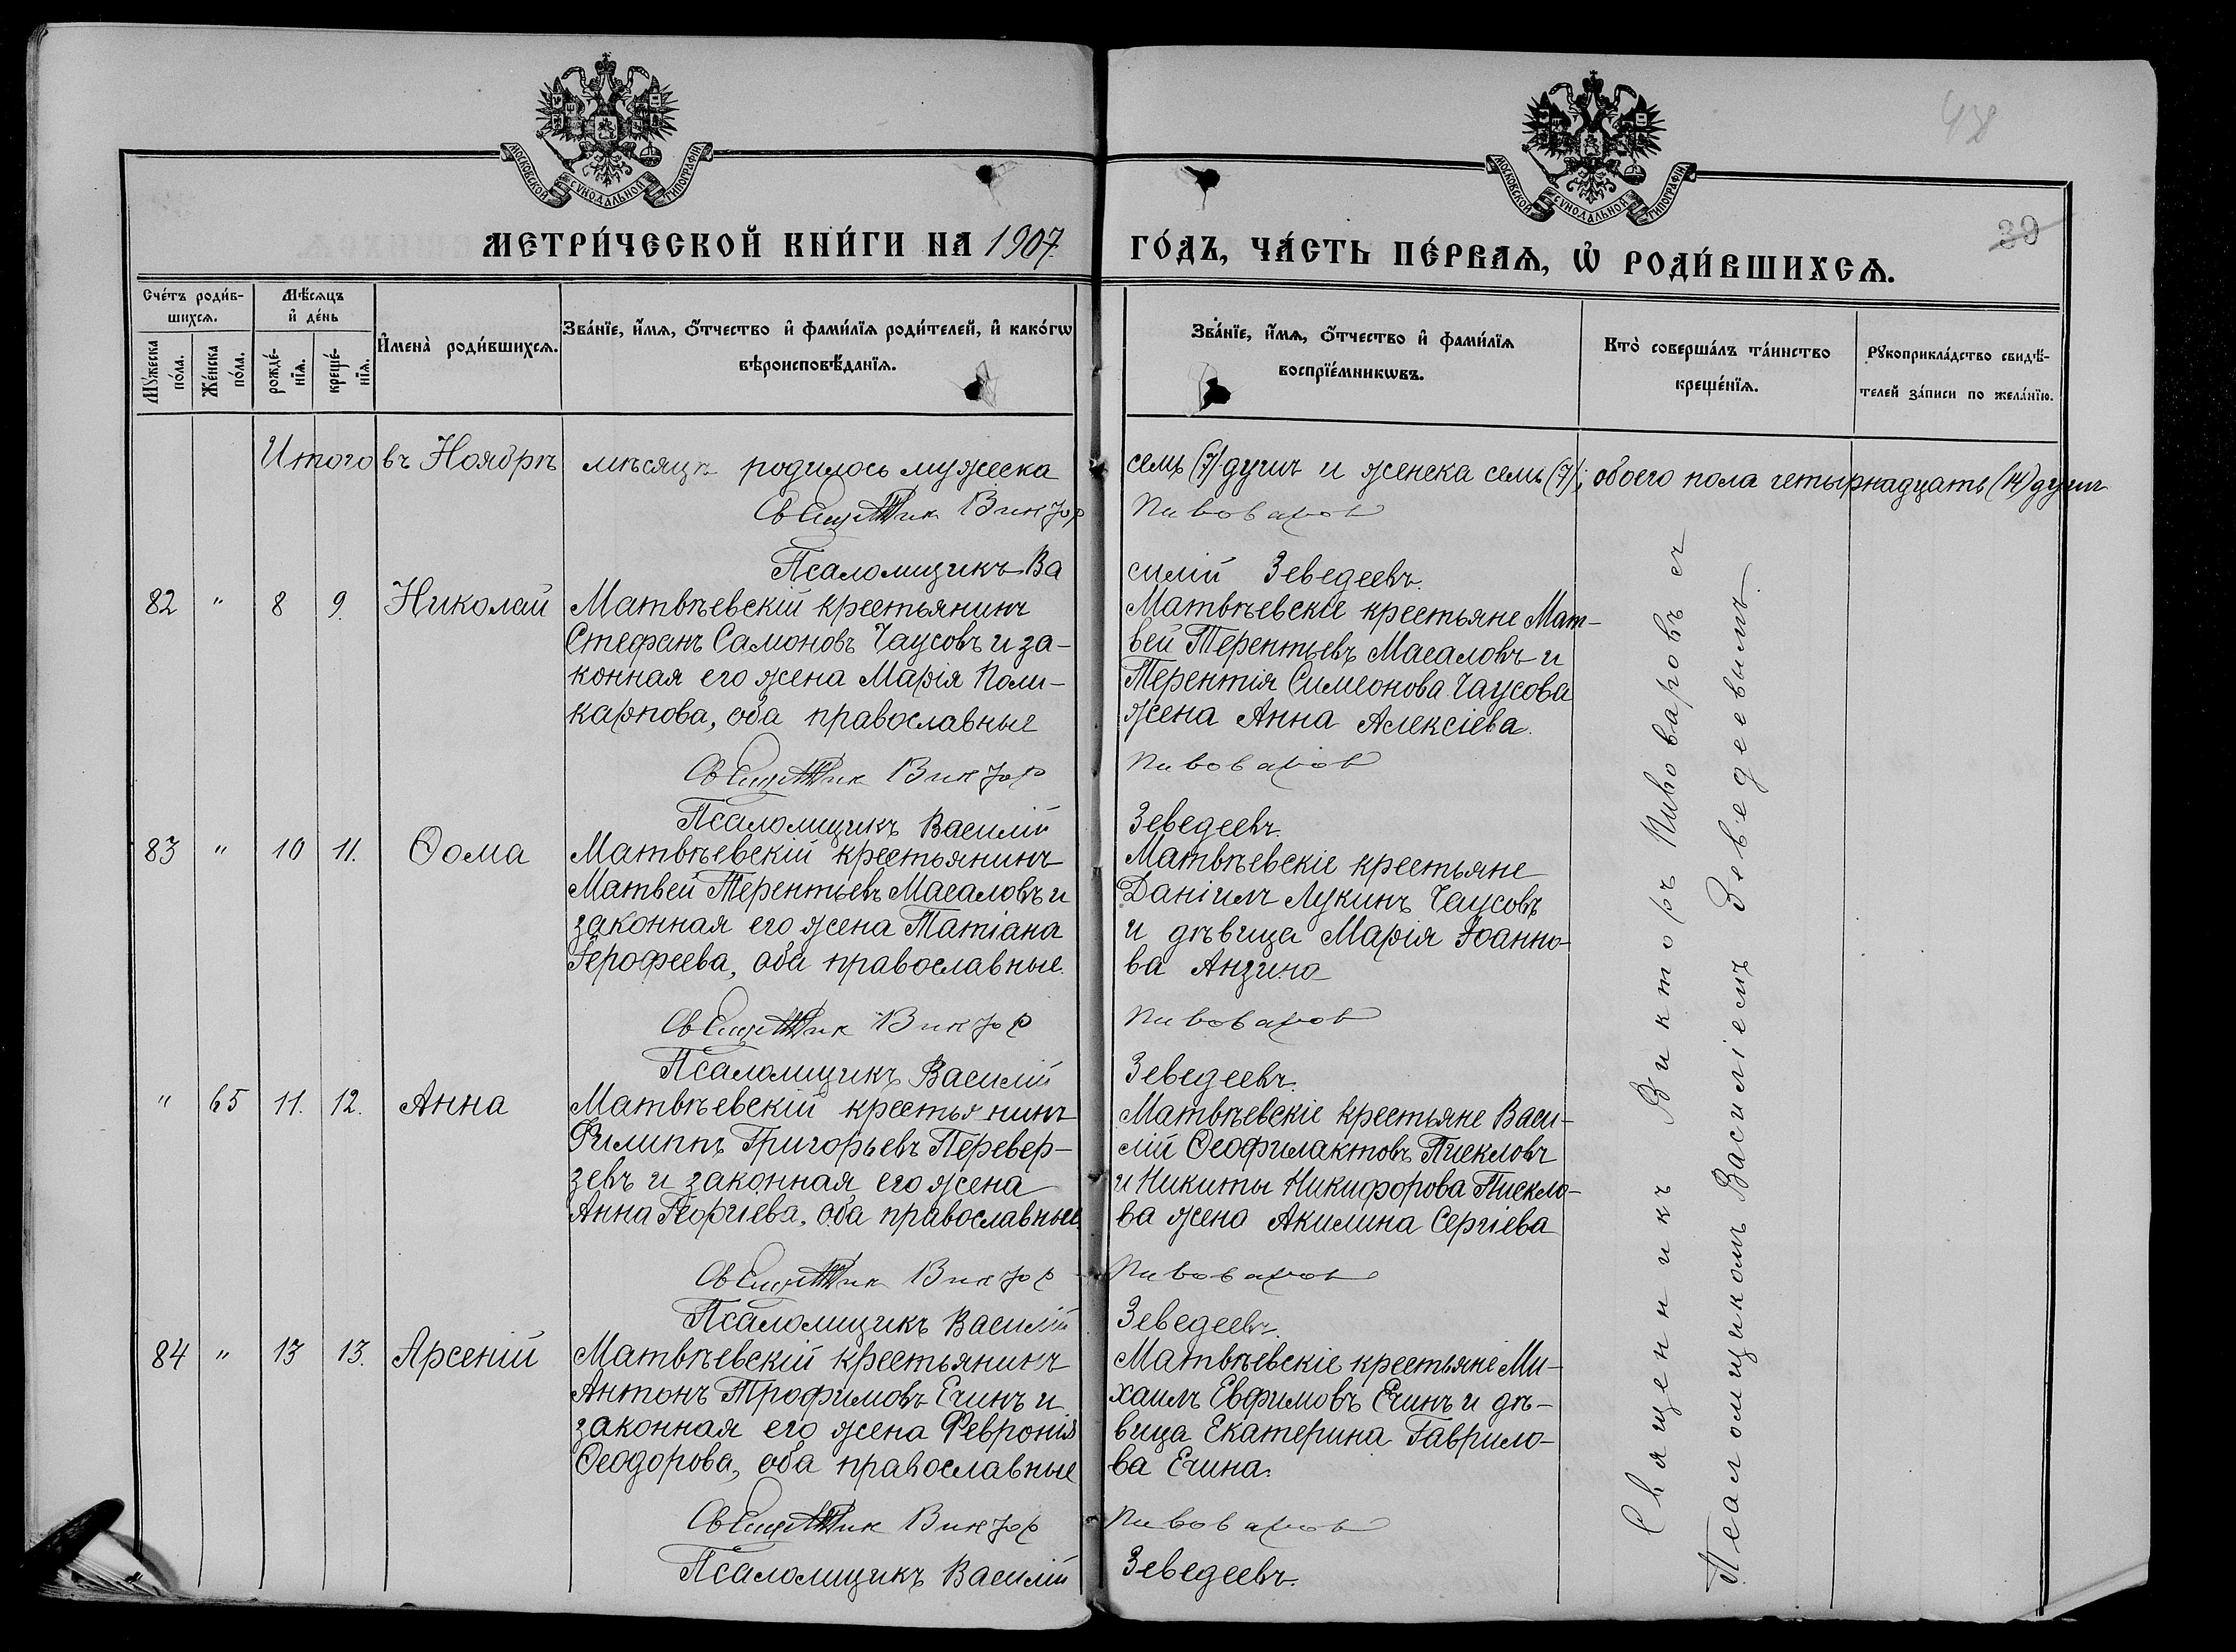 МОСКОВСКОЙ СѴНОДАЛЬНОЙ ТИПОГРАФІИ
МОСКОВСКОЙ СѴНОДАЛЬНОЙ ТИПОГРАФІИ
48
39
МЕТРИ́ЧЕСКОЙ КНИ́ГИ НА 1907 ГО́ДЪ, ЧА́СТЬ ПЕ́РВАѦ, Ѡ҆ РОДИ́ВШИХСѦ.
Сче́тъ роди́в-
шихсѧ.
Мꙋ́жеска
пола.
Же́нска
по́ла.
Мѣ́сѧцъ
и҆ де́нь
рожде́-
нїѧ.
креще́-
нїѧ.
И҆мена̀ роди́вшихсѧ.
Зва́нїе, и҆́мѧ, ѻ҆́тчество и҆ фами́лїѧ роди́телей, и҆ како́гѡ
вѣроисповѣ́данїѧ.
Зва́нїе, и҆́мѧ, ѻ҆́тчество и҆ фами́лїѧ
воспрїе́мникѡвъ.
Кто̀ соверша́лъ та́инство
креще́нїѧ.
Рꙋкоприкла́дство свидѣ́-
телей за́писи по жела́нїю.
Итого въ Ноябрѣ мѣсяцѣ родилось мужеска семь (7) душъ и женска семь (7); обоего пола четырнадцать (14) душъ
Священник Виктор Пивоваров
Псаломщикъ Василій Зеведеевъ.
82 " 8 9. Николай
Матвѣевскій крестьянинъ
Стефанъ Самоновъ Чаусовъ и за-
конная его жена Марія Поли-
карпова, оба православные
Матвѣевскіе крестьяне Мат-
вей Терентьевъ Масаловъ и
Терентія Симеонова Чаусова
жена Анна Алексіева.
Священник Виктор Пивоваров
Псаломщикъ Василій Зеведеевъ.
83 " 10 11. Ѳома
Матвѣевскій крестьянинъ
Матвей Терентьевъ Масаловъ и
законная его жена Татіана
Іерофеева, оба православные.
Матвѣевскіе крестьяне
Даніилъ Лукинъ Чаусовъ
и дѣвица Марія Іоанно-
ва Анзина
Священник Виктор Пивоваров
Псаломщикъ Василій Зеведеевъ.
" 65 11. 12. Анна
Матвѣевскій крестьянинъ
Филиппъ Григорьевъ Перевер-
зевъ и законная его жена
Анна Георгіева, оба православные
Матвѣевскіе крестьяне Васи-
лій Ѳеофилактовъ Писkловъ
и Никиты Никифорова Пискло-
ва жена Акилина Сергіева
Священник Виктор Пивоваров
Псаломщикъ Василій Зеведеевъ.
84 " 13 13. Арсеній
Матвѣевскій крестьянинъ
Антонъ Трофимовъ Ечинъ и
законная его жена Февронія
Ѳеодорова, оба православные
Матвѣевскіе крестьяне Ми-
хаилъ Евфимовъ Ечинъ и дѣ-
вица Екатерина Гаврило-
ва Ечина.
Священник Виктор Пивоваров
Псаломщикъ Василій Зеведеевъ.
Священникъ Викторъ Пивоваровъ съ
Псаломщикомъ Василіемъ Зеведеевымъ.